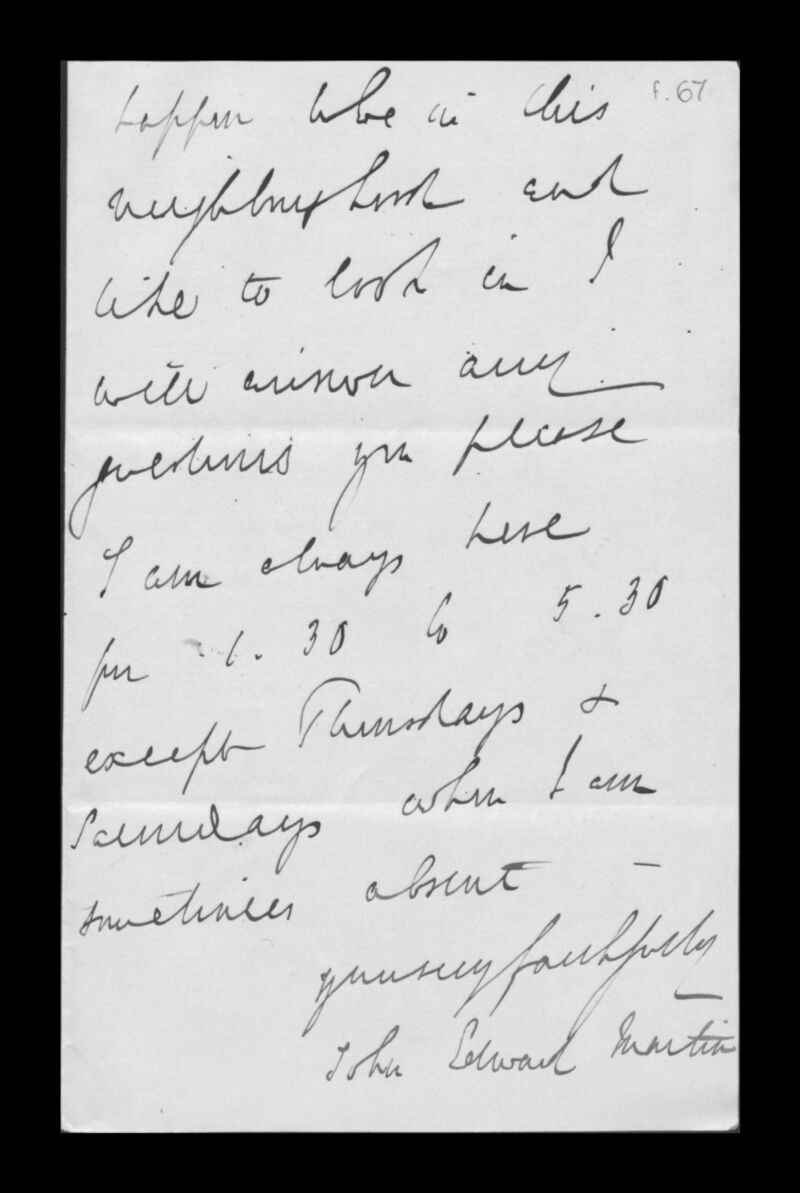 f. 67
happen to be in this
neighbourhood and
like to look in I
will answer any
questions you please
I am always here
from 1.30 to 5.30
except Thursdays &
Saturdays when I am
sometimes absent —
yours very faithfully
John Edward Martin